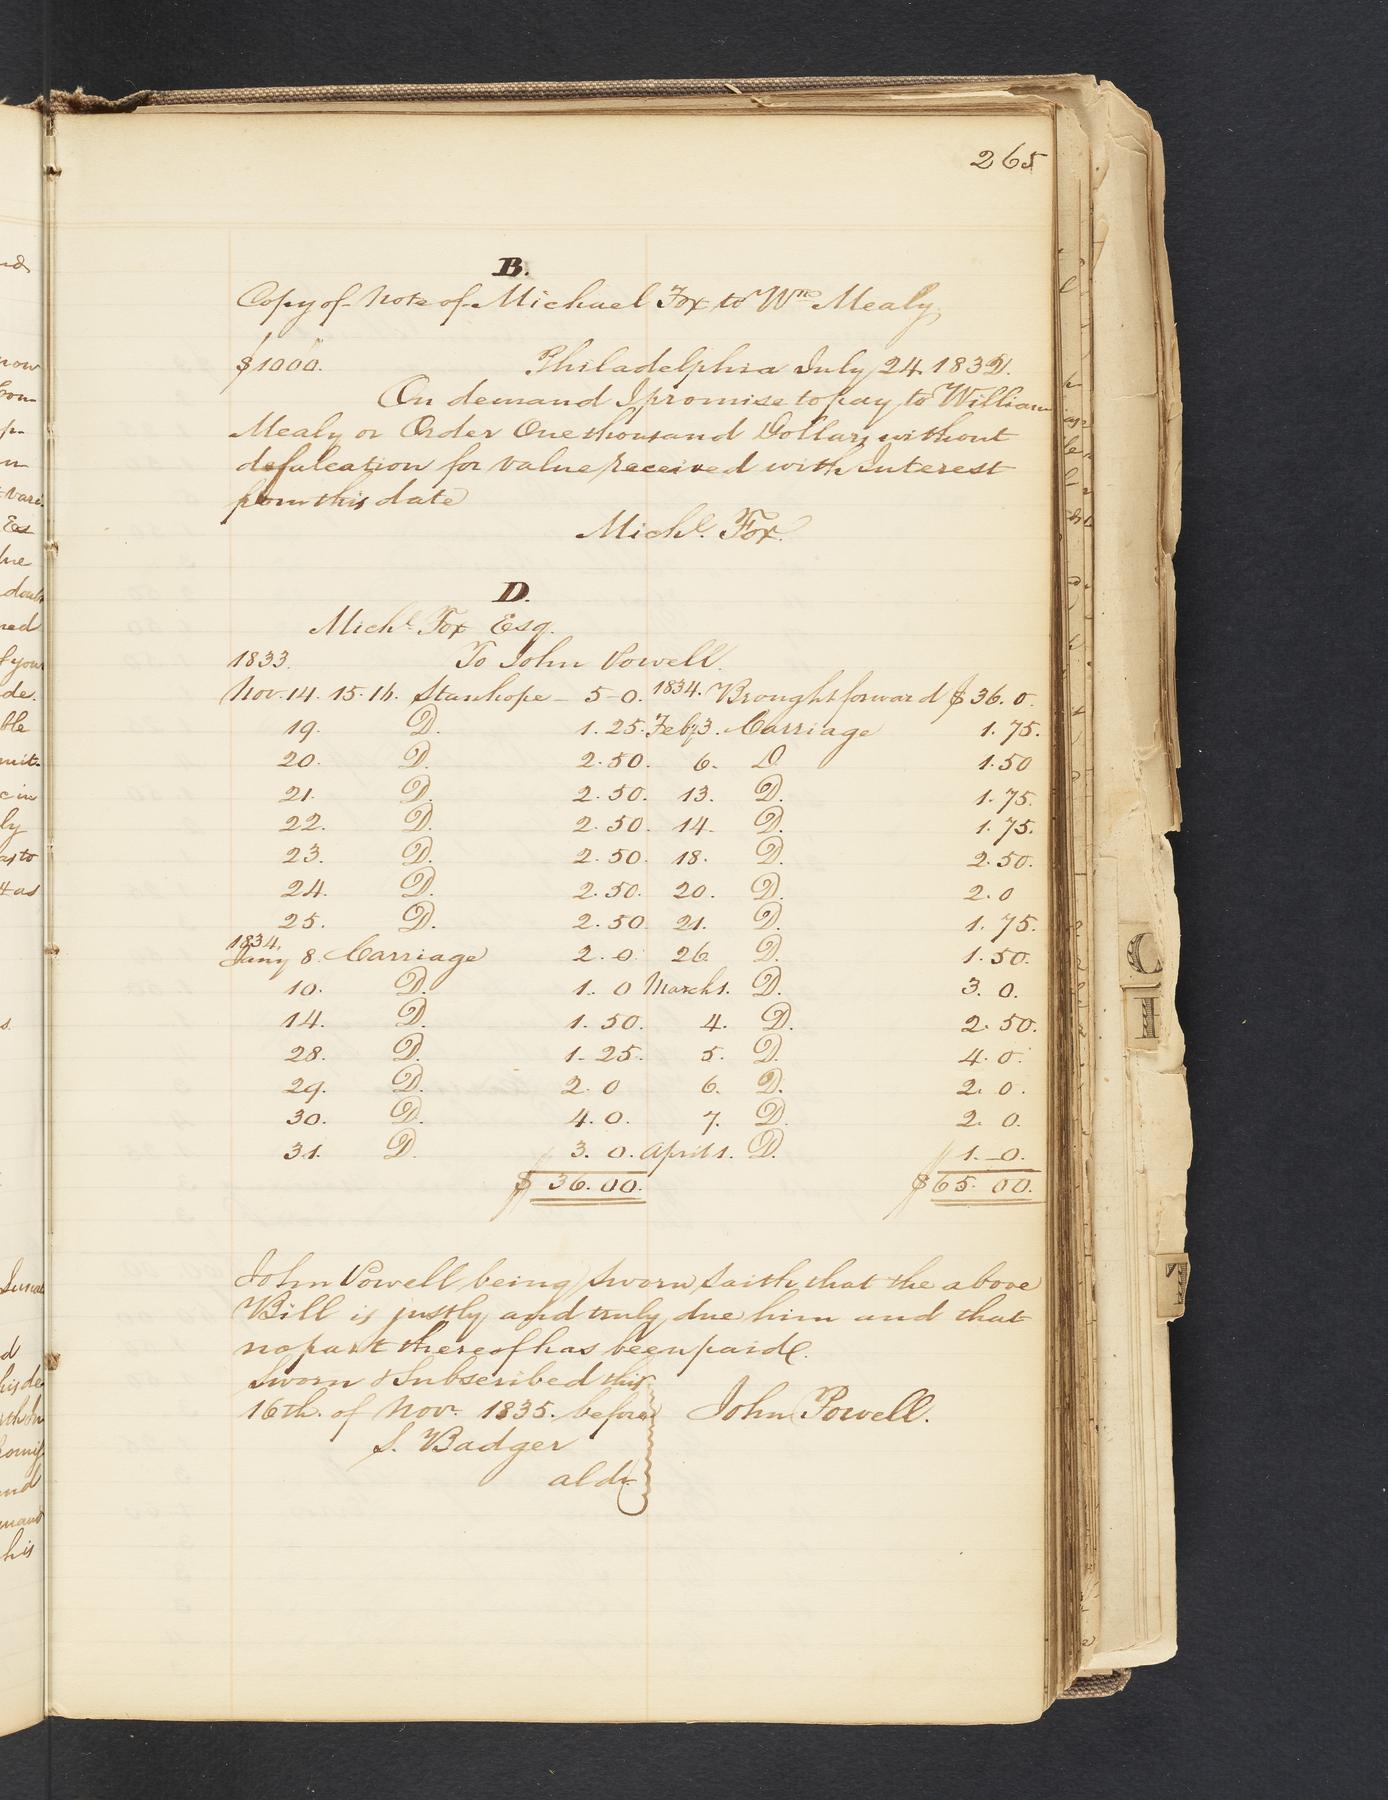 265
B.
Copy of Note of Michael Fox to Wm Mealy
$1000. Philadelphia July 24. 1832.
On demand I promise to pay to William
Mealy or Order One thousand Dollars without
defalcation for value received with Interest
from this date
Michl. Fox.
D.
Michl. Fox Esq.
1833. To John Powell.
Nov. 14. 15. 16. Stanhope 5-0. 1834. Brought forward $36.0.
19. D. 1.25. Feby 3. Carriage 1.75.
20. D. 2.50. 6. D 1.50
21. D. 2.50. 13. D. 1.75.
22. D. 2.50. 14. D. 1.75.
23. D. 2.50. 18. D. 2.50.
24. D. 2.50. 20. D. 2.0
25. D. 2.50 21. D. 1.75.
1834.
Jany 8. Carriage 2.0 26 D. 1.50.
10. D. 1.0 March 1. D. 3.0.
14. D. 1.50. 4. D. 2.50.
28. D. 1.25. 5. D. 4.0.
29. D. 2.0 6. D. 2.0.
30. D. 4.0. 7. D. 2.0.
31. D. 3.0. April 1. D. 1.0.
$36.00. $65.00.
John Powell being Sworn Saith that the above
Bill is justly and truly due him and that
no part thereof has been paid.
Sworn & Subscribed this
16th. of Nov. 1835. before John Powell.
S. Badger
ald.
C
H
T